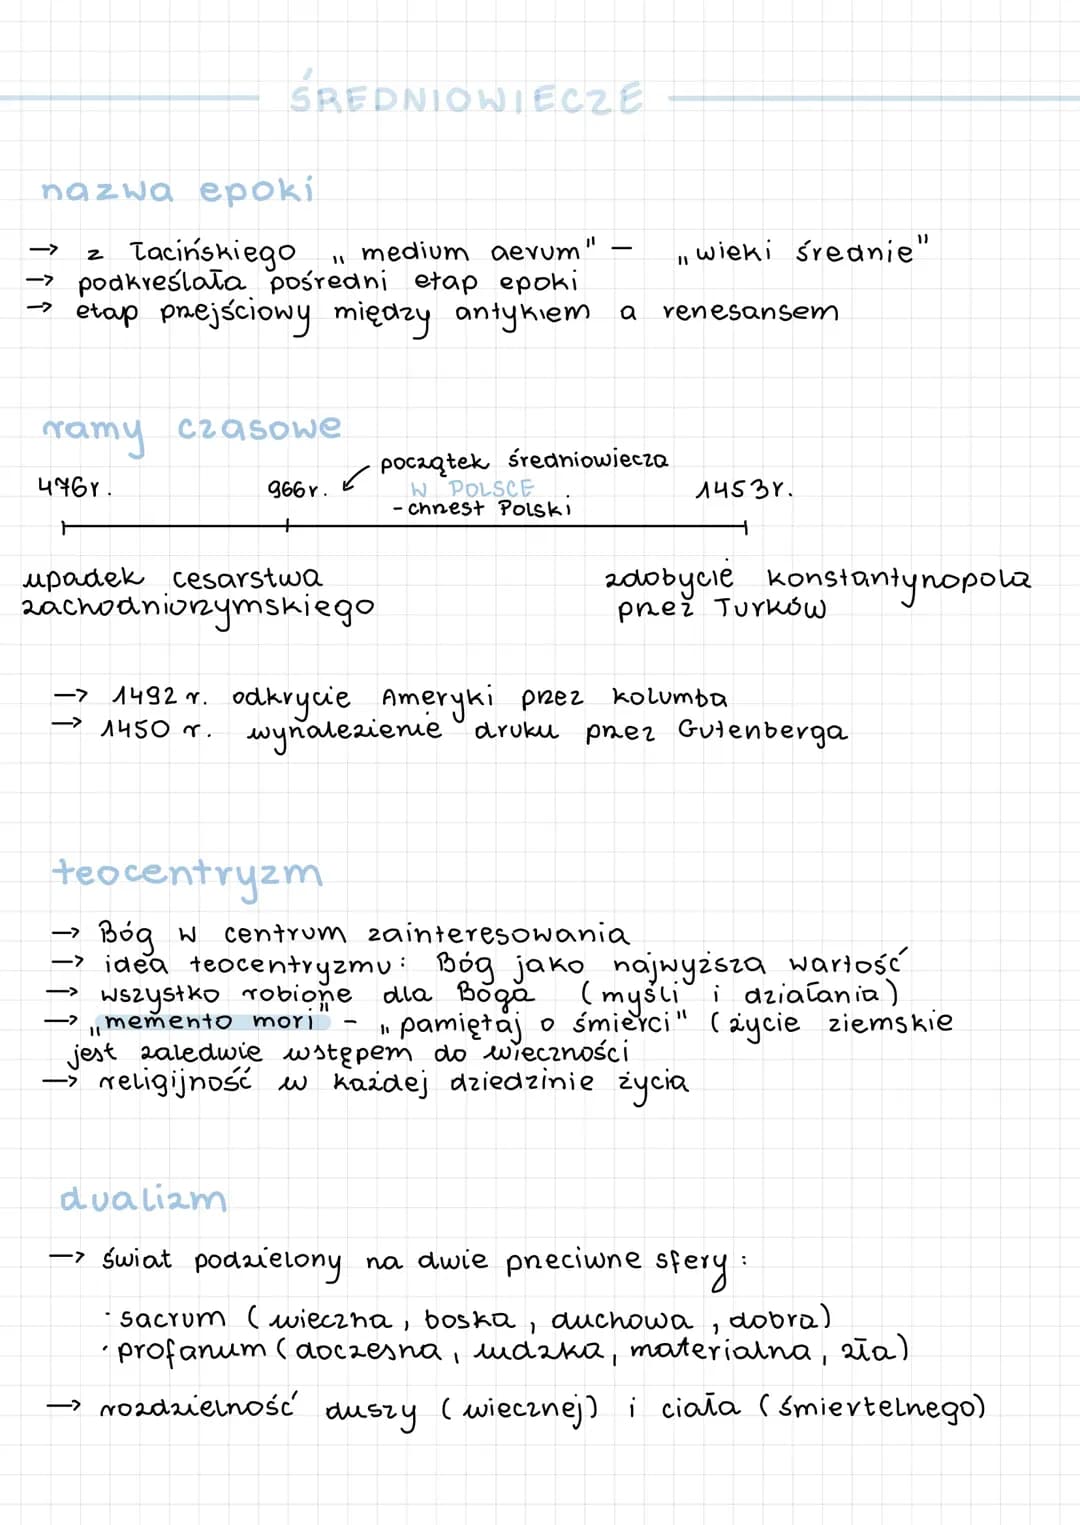 ŚREDNIOWIECZE
nazwa epoki
→ z łacińskiego „medium aevum" – „wieki średnie"
→ podkreślała pośredni etap epoki
→ etap przejściowy między antykiem a renesansem
ramy czasowe
początek średniowiecza
476r. 966r. W POLSCE 1453r.
- chrzest Polski
upadek cesarstwa zdobycie konstantynopola
zachodniorzymskiego przez Turków
→ 1492 r. odkrycie Ameryki przez kolumba
→ 1450 r. wynalezienie druku przez Gutenberga
teocentryzm
→ Bóg w centrum zainteresowania
→ idea teocentryzmu: Bóg jako najwyższa wartość
→ wszystko robione dla Boga (myśli i działania)
→ „memento mori" - „pamiętaj o śmierci" (życie ziemskie
jest zaledwie wstępem do wieczności
→ religijność w każdej dziedzinie życia
dualizm
→ świat podzielony na dwie przeciwne sfery:
· sacrum (wieczna, boska, duchowa, dobra)
· profanum (doczesna, ludzka, materialna, zła)
→ rozdzielność duszy (wiecznej) i ciała (śmiertelnego)